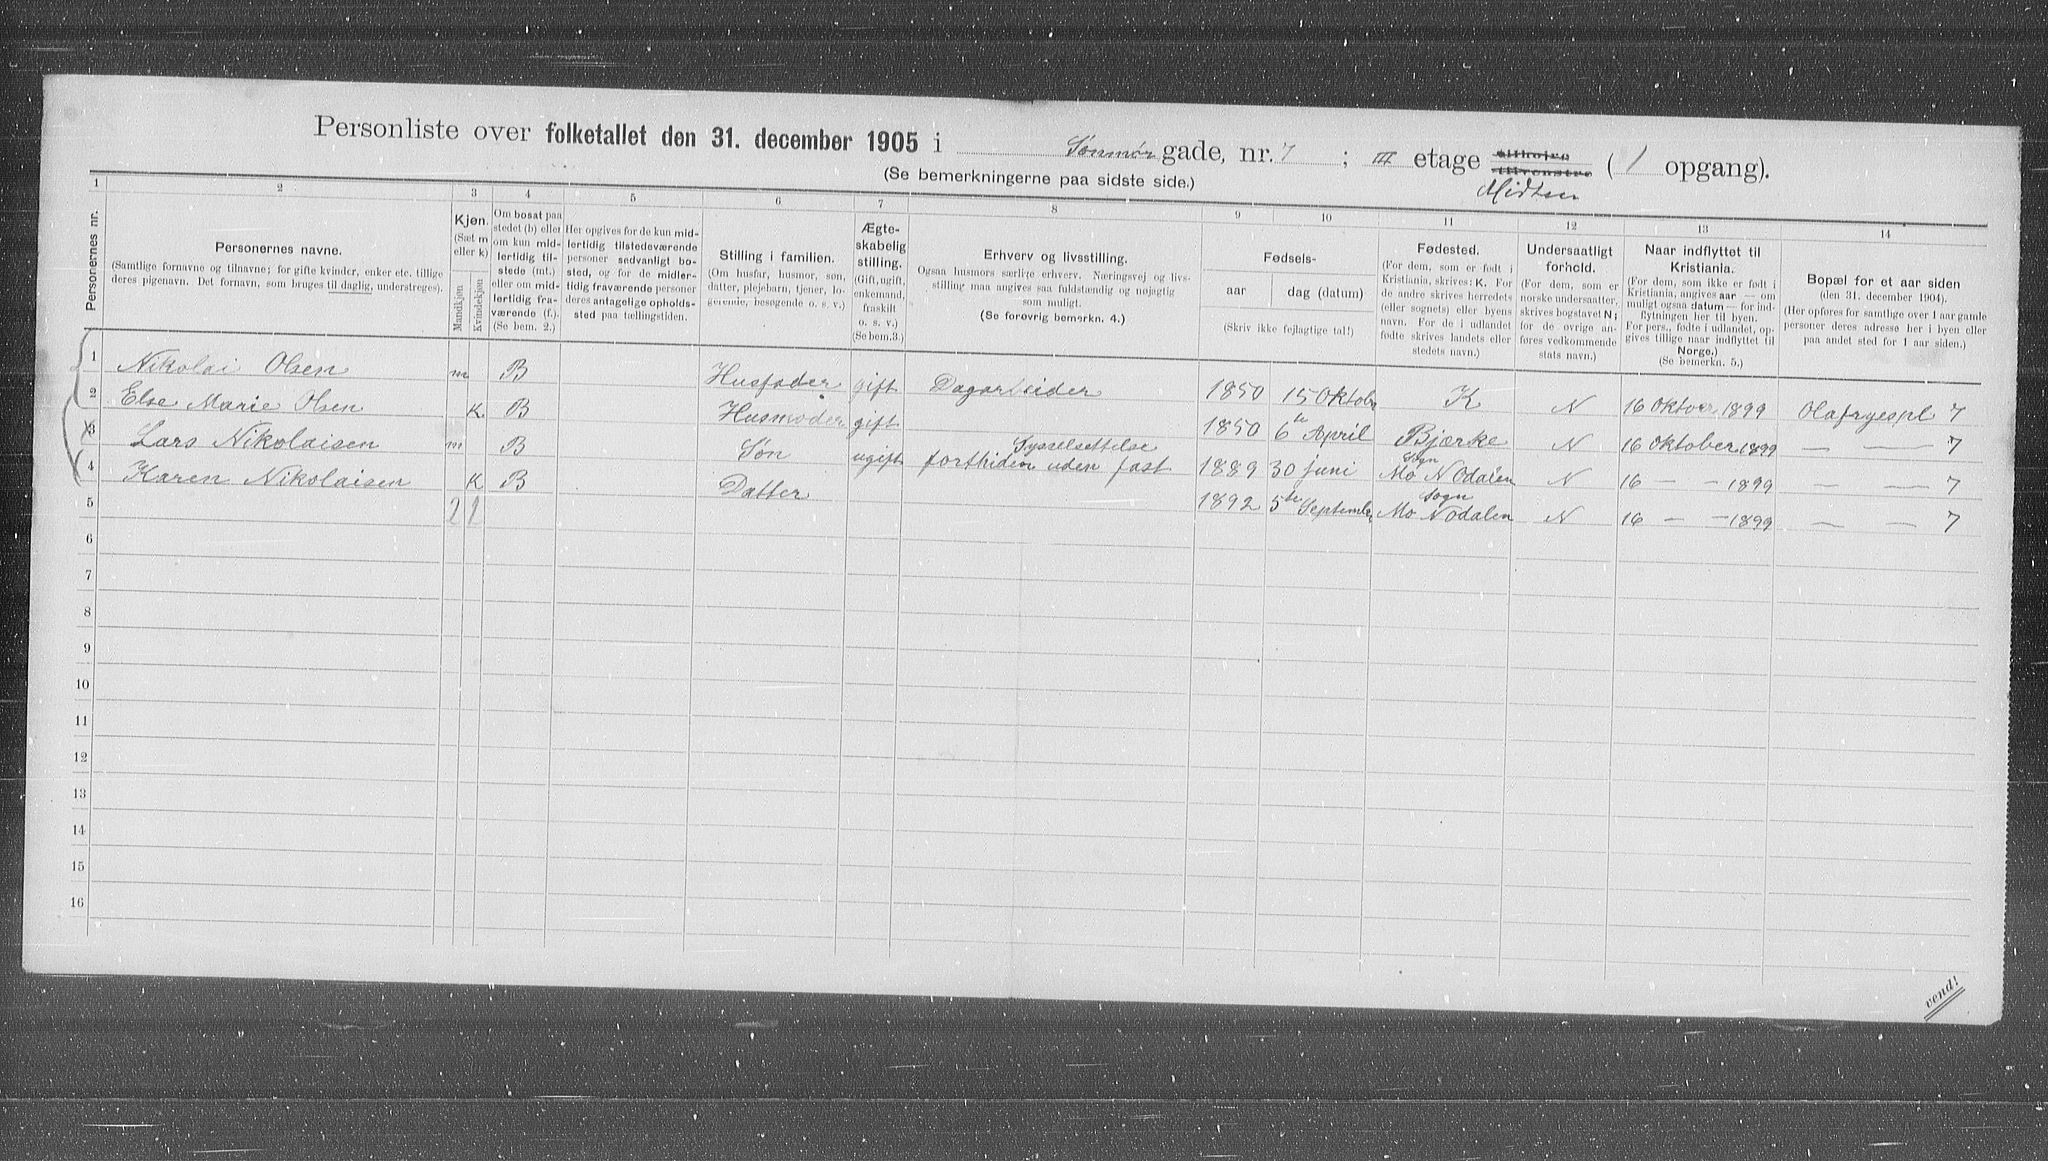 Personliste over folketallet den 31. december 1905 i Sønmør gade, nr. 7 ; III etage tilhøire tilvenstre (1 opgang).
(Se bemerkningerne paa sidste side.) Midten
1 2 3 4 5 6 7 8 9 10 11 12 13 14
Personernes nr.
Personernes navne.
(Samtlige fornavne og tilnavne; for gifte kvinder, enker etc. tillige
deres pigenavn. Det fornavn, som bruges til daglig, understreges).
Kjøn.
(Sæt m
eller k)
Mandkjøn
Kvindekjøn
Om bosat paa
stedet (b) eller
om kun mid-
lertidig til-
stede (mt.)
eller om mid-
lertidig fra-
værende (f.)
(Se bem. 2.)
Her opgives for de kun mid-
lertidig tilstedeværende
personer sedvanligt bo-
sted, og for de midler-
tidig fraværende personer
deres antagelige opholds-
sted paa tællingstiden.
Stilling i familien.
(Om husfar, husmor, søn,
datter, plejebarn, tjener, lo-
gerende, besøgende o. s. v.)
Ægte-
skabelig
stilling.
(Gift, ugift,
enkemand,
fraskilt
o. s. v.)
(Se bem.3.)
Erhverv og livsstilling.
Ogsaa husmors særlige erhverv. Næringsvej og livs-
stilling maa angives saa fuldstændig og nøjagtig
som muligt.
(Se forøvrig bemerkn. 4.)
Fødsels-
aar dag (datum)
(Skriv ikke fejlagtige tal!)
Fødested.
(For dem, som er født i
Kristiania, skrives: K. For
de andre skrives herredets
(eller sognets) eller byens
navn. For de i udlandet
fødte skrives landets eller
stedets navn.)
Undersaatligt
forhold.
(For dem, som er
norske undersaatter,
skrives bogstavet N;
for de øvrige an-
føres vedkommende
stats navn.)
Naar indflyttet til
Kristiania.
(For dem, som ikke er født i
Kristiania, angives aar — om
muligt ogsaa datum — for ind-
flytningen her til byen.
For pers., fødte i udlandet, op-
gives tillige naar indflyttet til
Norge.)
(Se bemerkn. 5.)
Bopæl for et aar siden
(den 31. december 1904).
(Her opføres for samtlige over 1 aar gamle
personer deres adresse her i byen eller
paa andet sted for 1 aar siden.)
1 Nikolai Olsen m B Husfader gift Dagarbeider 1850 15 Oktobr K N 16 Oktover 1899 Olafryespl 7
2 Else Marie Olsen K B Husmoder gift 1850 6te April Bjærke N 16 Oktober 1899 — — 7
3 Lars Nikolaisen m B Søn ugift fortbiden uden fast Sysselsettelse 1889 30 juni Mo Sogn N Odalen N 16 — — 1899 — — 7
4 Karen Nikolaisen K B Datter 1892 5te September Mo Sogn N Odalen N 16 — — 1899 — — 7
5 2 2
6
7
8
9
10
11
12
13
14
15
16
vend!